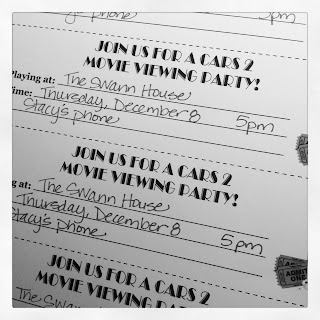 5pm
Stacy's phone
JOIN US FOR A CARS 2
MOVIE VIEWING PARTY!
Playing at: The Swann House
Time: Thursday, December 8 5pm
Stacy's phone
JOIN US FOR A CARS 2
MOVIE VIEWING PARTY!
g at: The Swann House
Thursday, December 8 5pm
Stacy's phone
ADMIT
ONE
JOIN US FOR A CARS 2
MOVIE VIEWING PARTY!
The Swann House